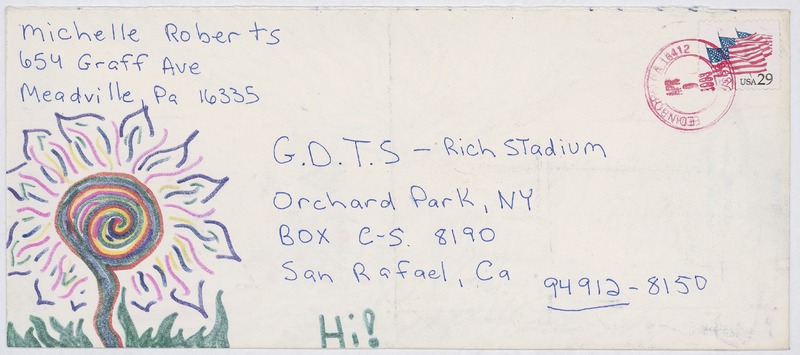 Michelle Roberts
654 Graff Ave
Meadville, Pa 16335
USA 29
EDINBORO PA 16412
APR
G.D.T.S - Rich Stadium
Orchard Park, NY
BOX C-S. 8190
San Rafael, Ca 94912-8150
Hi!